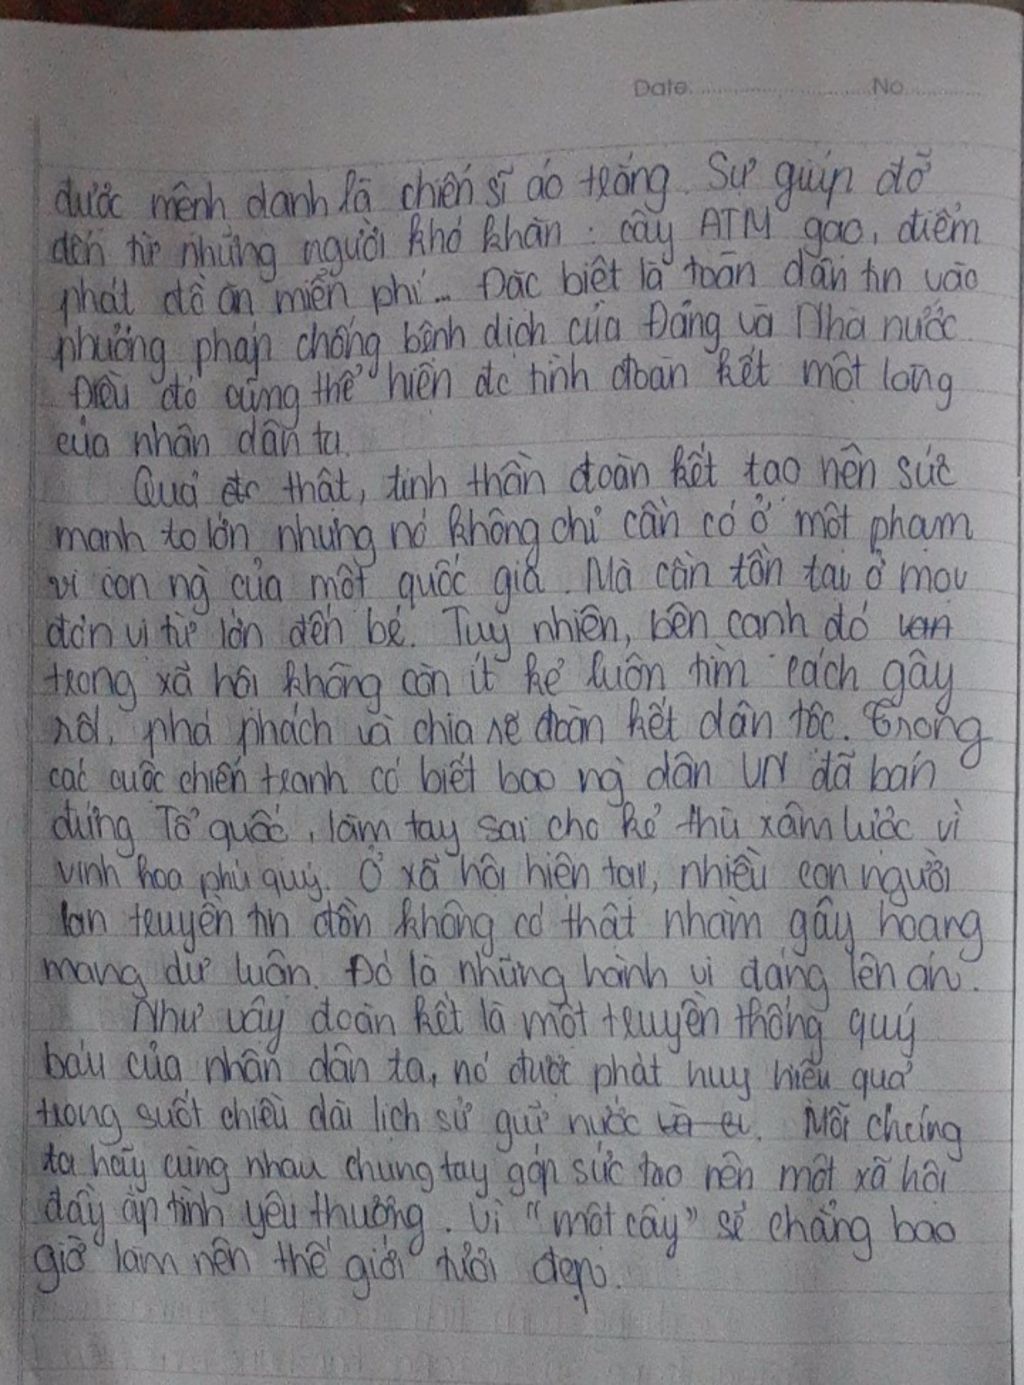 Date.................No..........
được mệnh danh là chiến sĩ áo trắng. Sự giúp đỡ
đến từ những người khó khăn : cây ATM gạo, điểm
phát đồ ăn miễn phí... Đặc biệt là toàn dân tin vào
phương pháp chống bệnh dịch của Đảng và Nhà nước.
Điều đó cũng thể hiện đc tinh đoàn kết một lòng
của nhân dân ta.
Quả thật, tinh thần đoàn kết tạo nên sức
mạnh to lớn nhưng nó không chỉ cần có ở một phạm
vi con ng của một quốc gia. Mà cần tồn tại ở mọi
đơn vị từ lớn đến bé. Tuy nhiên, bên cạnh đó
trong xã hội không còn ít kẻ luôn tìm cách gây
rối, phá phách và chia rẽ đoàn kết dân tộc. Trong
các cuộc chiến tranh có biết bao ng dân VN đã bán
đứng Tổ quốc, làm tay sai cho kẻ thù xâm lược vì
vinh hoa phú quý. Ở xã hội hiện tại, nhiều con người
lan truyền tin đồn không có thật nhằm gây hoang
mang dư luận. Đó là những hành vi đáng lên án.
Như vậy đoàn kết là một truyền thống quý
báu của nhân dân ta, nó được phát huy hiệu quả
trong suốt chiều dài lịch sử giữ nước. Mỗi chúng
ta hãy cùng nhau chung tay góp sức tạo nên một xã hội
đầy ắp tình yêu thương. Vì "một cây" sẽ chẳng bao
giờ làm nên thế giới tươi đẹp.